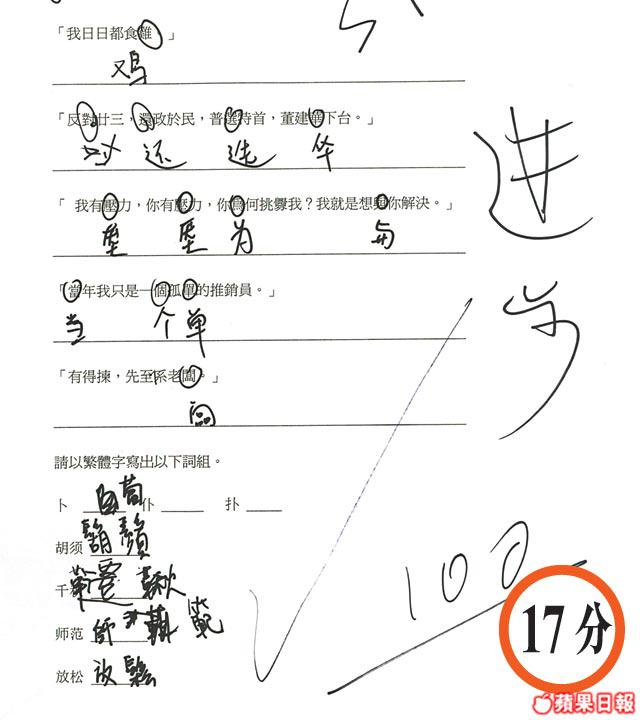 「我日日都食雞。」
又鸡
「反對廿三，還政於民，普選特首，董建華下台。」
对 还 选 华
「我有壓力，你有壓力，你為何挑釁我？我就是想與你解決。」
压 压 为 与
「當年我只是一個孤單的推銷員。」
当 个 单
「有得揀，先至係老闆。」
请以繁體字寫出以下詞組。
卜 仆 扑
胡须 鬍鬚
千秋
师范 師 範
放松 放鬆
进步
100
17分
蘋果日報